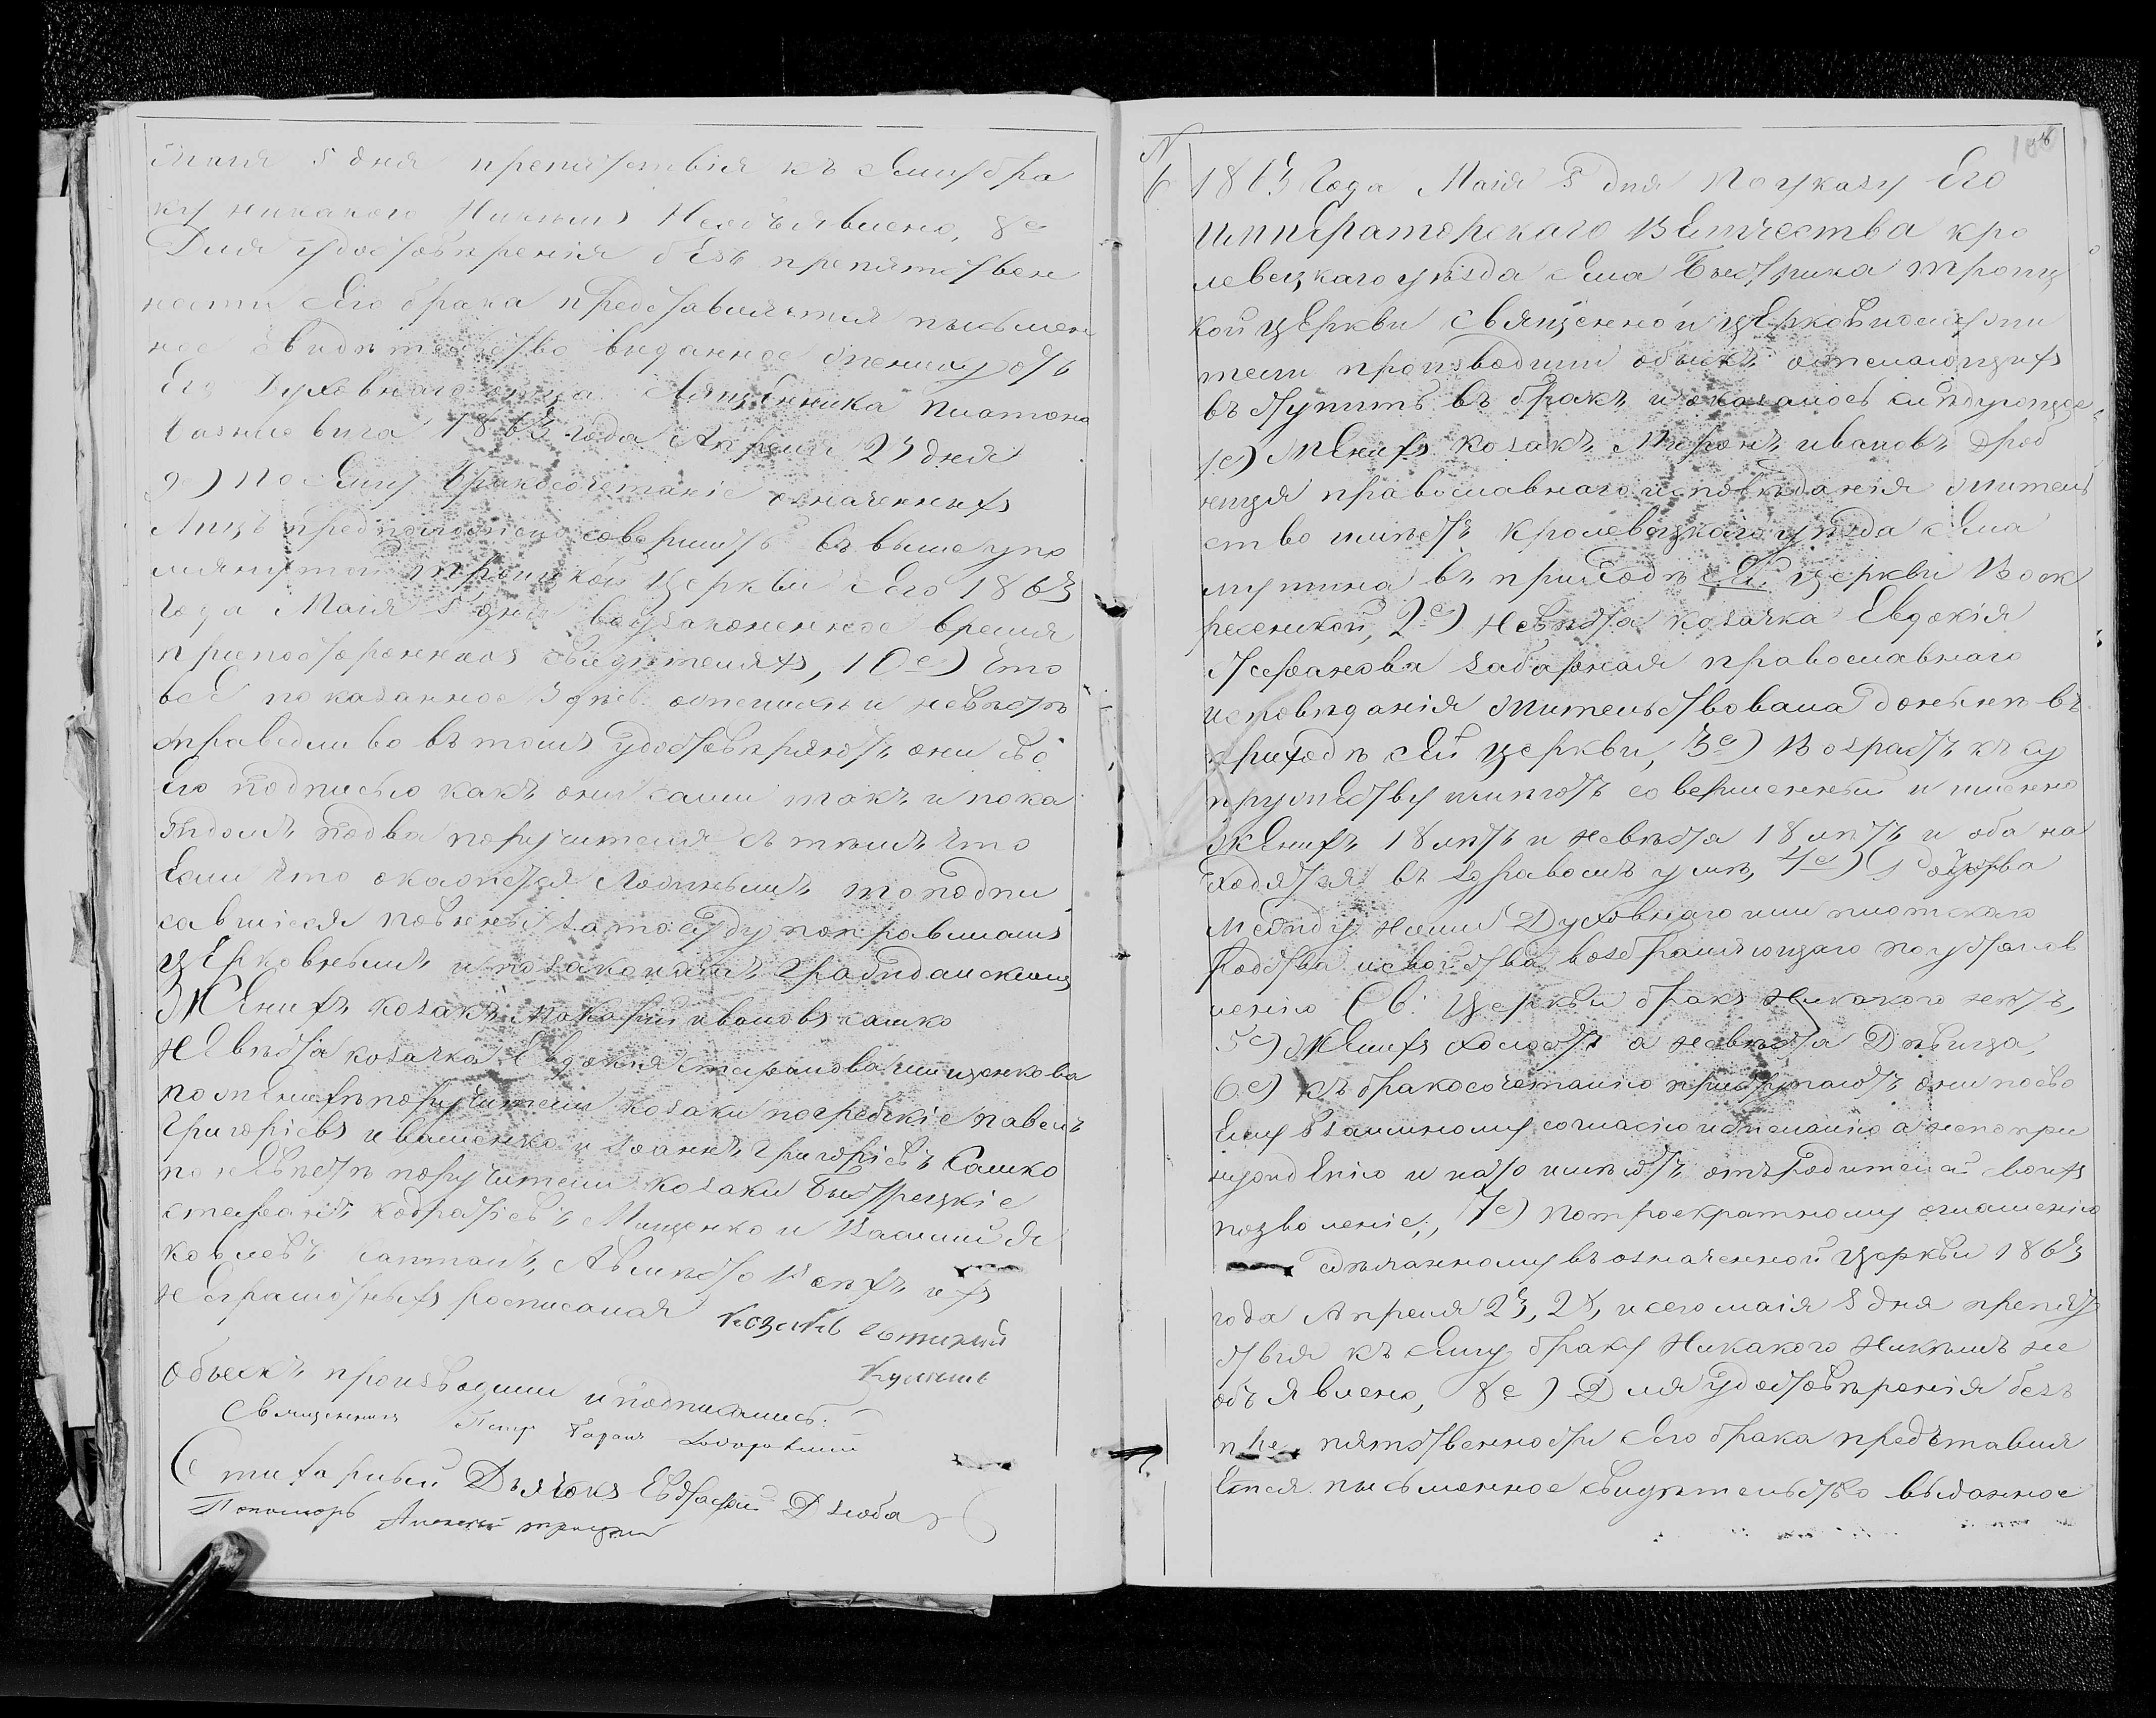 Маія 5 дня препятствія къ Сему бра
ку никакого Никемъ Необъявлено, 8е
Для удостовѣренія безъ препятствен
ности Сего брака представляется письмен
ное свидѣтельство виданное жениху отъ
Его Духовнаго отца Священника Платона
1863 года Апреля 23 дня
9е) по Сему бракосочетаніе означенныхъ
Лицъ предположено совершить въ выше упо
мянутой троицкой Церкви Сего 1863
Года Маія 5 дня воузаконенное время
припостороннихъ свидѣтеляхъ, 10е) Что
всЕ показанное здѣсь ожених и невѣстѣ
справедливо въ томъ удостовѣряютъ они сво
Ею подписью какъ они сами такъ и пока
ждомъ подва поручителя съ тѣмъ что
Если что окажется Ложнымъ то подпи
савшіеся повинны зато суду поправиламъ
цЕрковнымъ и позаконамъ гражданскимъ
ЖЕнихъ козакъ Макарій ивановъ сашко
нЕвѣста козачка Евдокія стефанова мищенкова
пожЕнихѣ поручители козаки погребскіе павелъ
григоріевъ ивашенко и іоаннъ григоріевъ Сашко
по нЕвѣстѣ поручители козаки быстрецкіе
стефанъ кодратіевъ Мищенко и Василий Я
ковлевъ Авмѣсто Всѣхъ ихъ
нЕграмотныхъ росписался козакъ
Обыскъ производили иподписались:
Священникъ Петръ
Стихарный Дьячокъ Евстафій Дзюба
Пономарь Алексей троицкий
N
6 1863 Года Маія 5 дня Поуказу Его
импЕраторскаго вЕличества кро
левецкаго уѣзда сЕла Быстрика троиц
кой цЕркви священно и цЕрковнослужи
тели производили обыскъ ожелающихъ
въступить въ бракъ и оказалось слѣдующее
1е) жЕнихъ козакъ Миронъ ивановъ Дроб
нецкя православнаго исповѣданія жител
ство имѣетъ кролевецкаго уѣзда сЕла
мутина въ приходѣ сЕй церкви Воск
ресенской, 2е) нЕвѣста козачка Евдокія
стефанова забарная православнаго
исповѣданія жительствовала донынѣ въ
приходѣ сЕй церкви, 3е) Возрастъ къ су
пружЕству имѣютъ совершенный и именно
жЕнихъ 18 лѣтъ и нЕвѣста 18 лѣтъ и оба на
ходятся въ здравомъ умѣ, 4е)
мЕжду ними Духовнаго или плотскаго
родства исвойства возбраняющаго поустанов
ленію Св: Церкви бракъ никакого нѣтъ,
5е) жЕнихъ холостъ а нЕвѣста Дѣвица,
6е) къ бракосочетанію приступаютъ они посво
Ему взаимному согласію ижеланію а непопри
нуждЕнію и нато имѣютъ отъродителей своихъ
позволеніе;, 7е) потроекратному оглашенію
сдѣланному въ означенной церкви 1863
года Апреля 23, 28, исего маія 5 дня препят
ствія къ сЕму браку никакого никѣмъ не
объЯвлено, 8е) Для удостовѣренія безъ
пре пятственности сЕго брака предъставля
Ется письменное свидѣтельство выданное